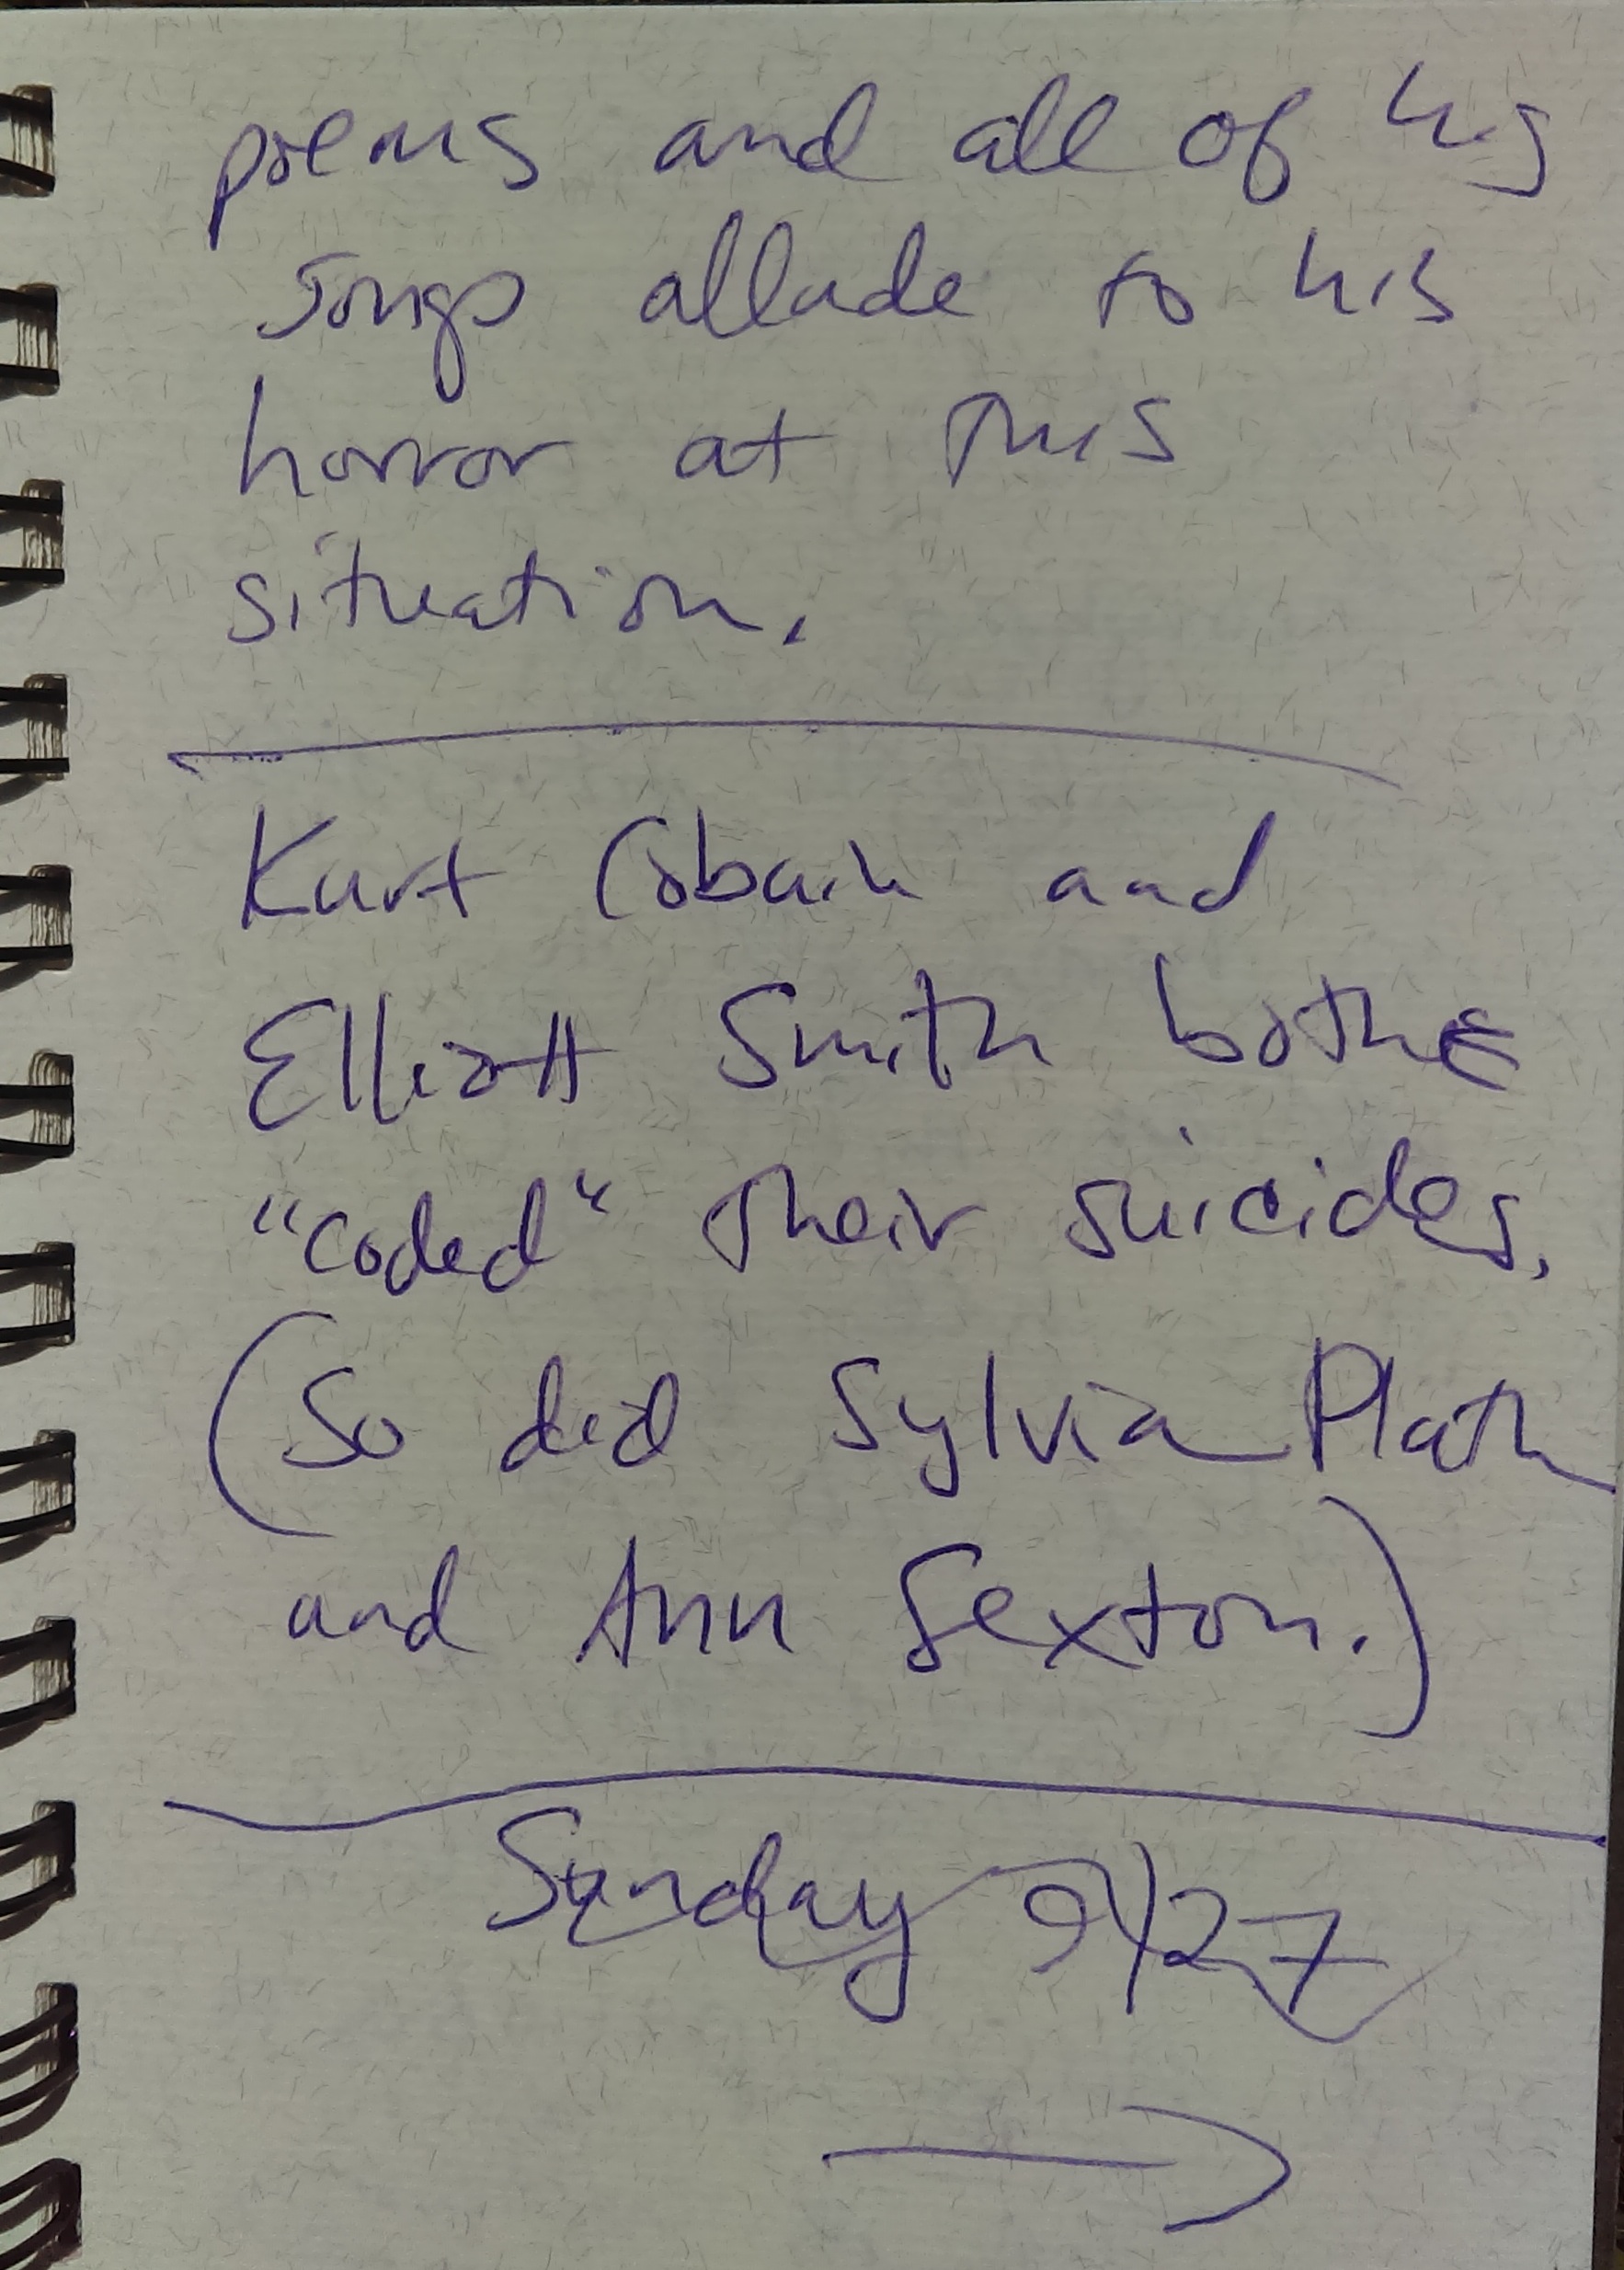 poems and all of his
songs allude to his
horror at this
situation.
Kurt Cobain and
Elliott Smith both
"coded" their suicides.
(So did Sylvia Plath
and Ann Sexton.)
Sunday 9/27
→